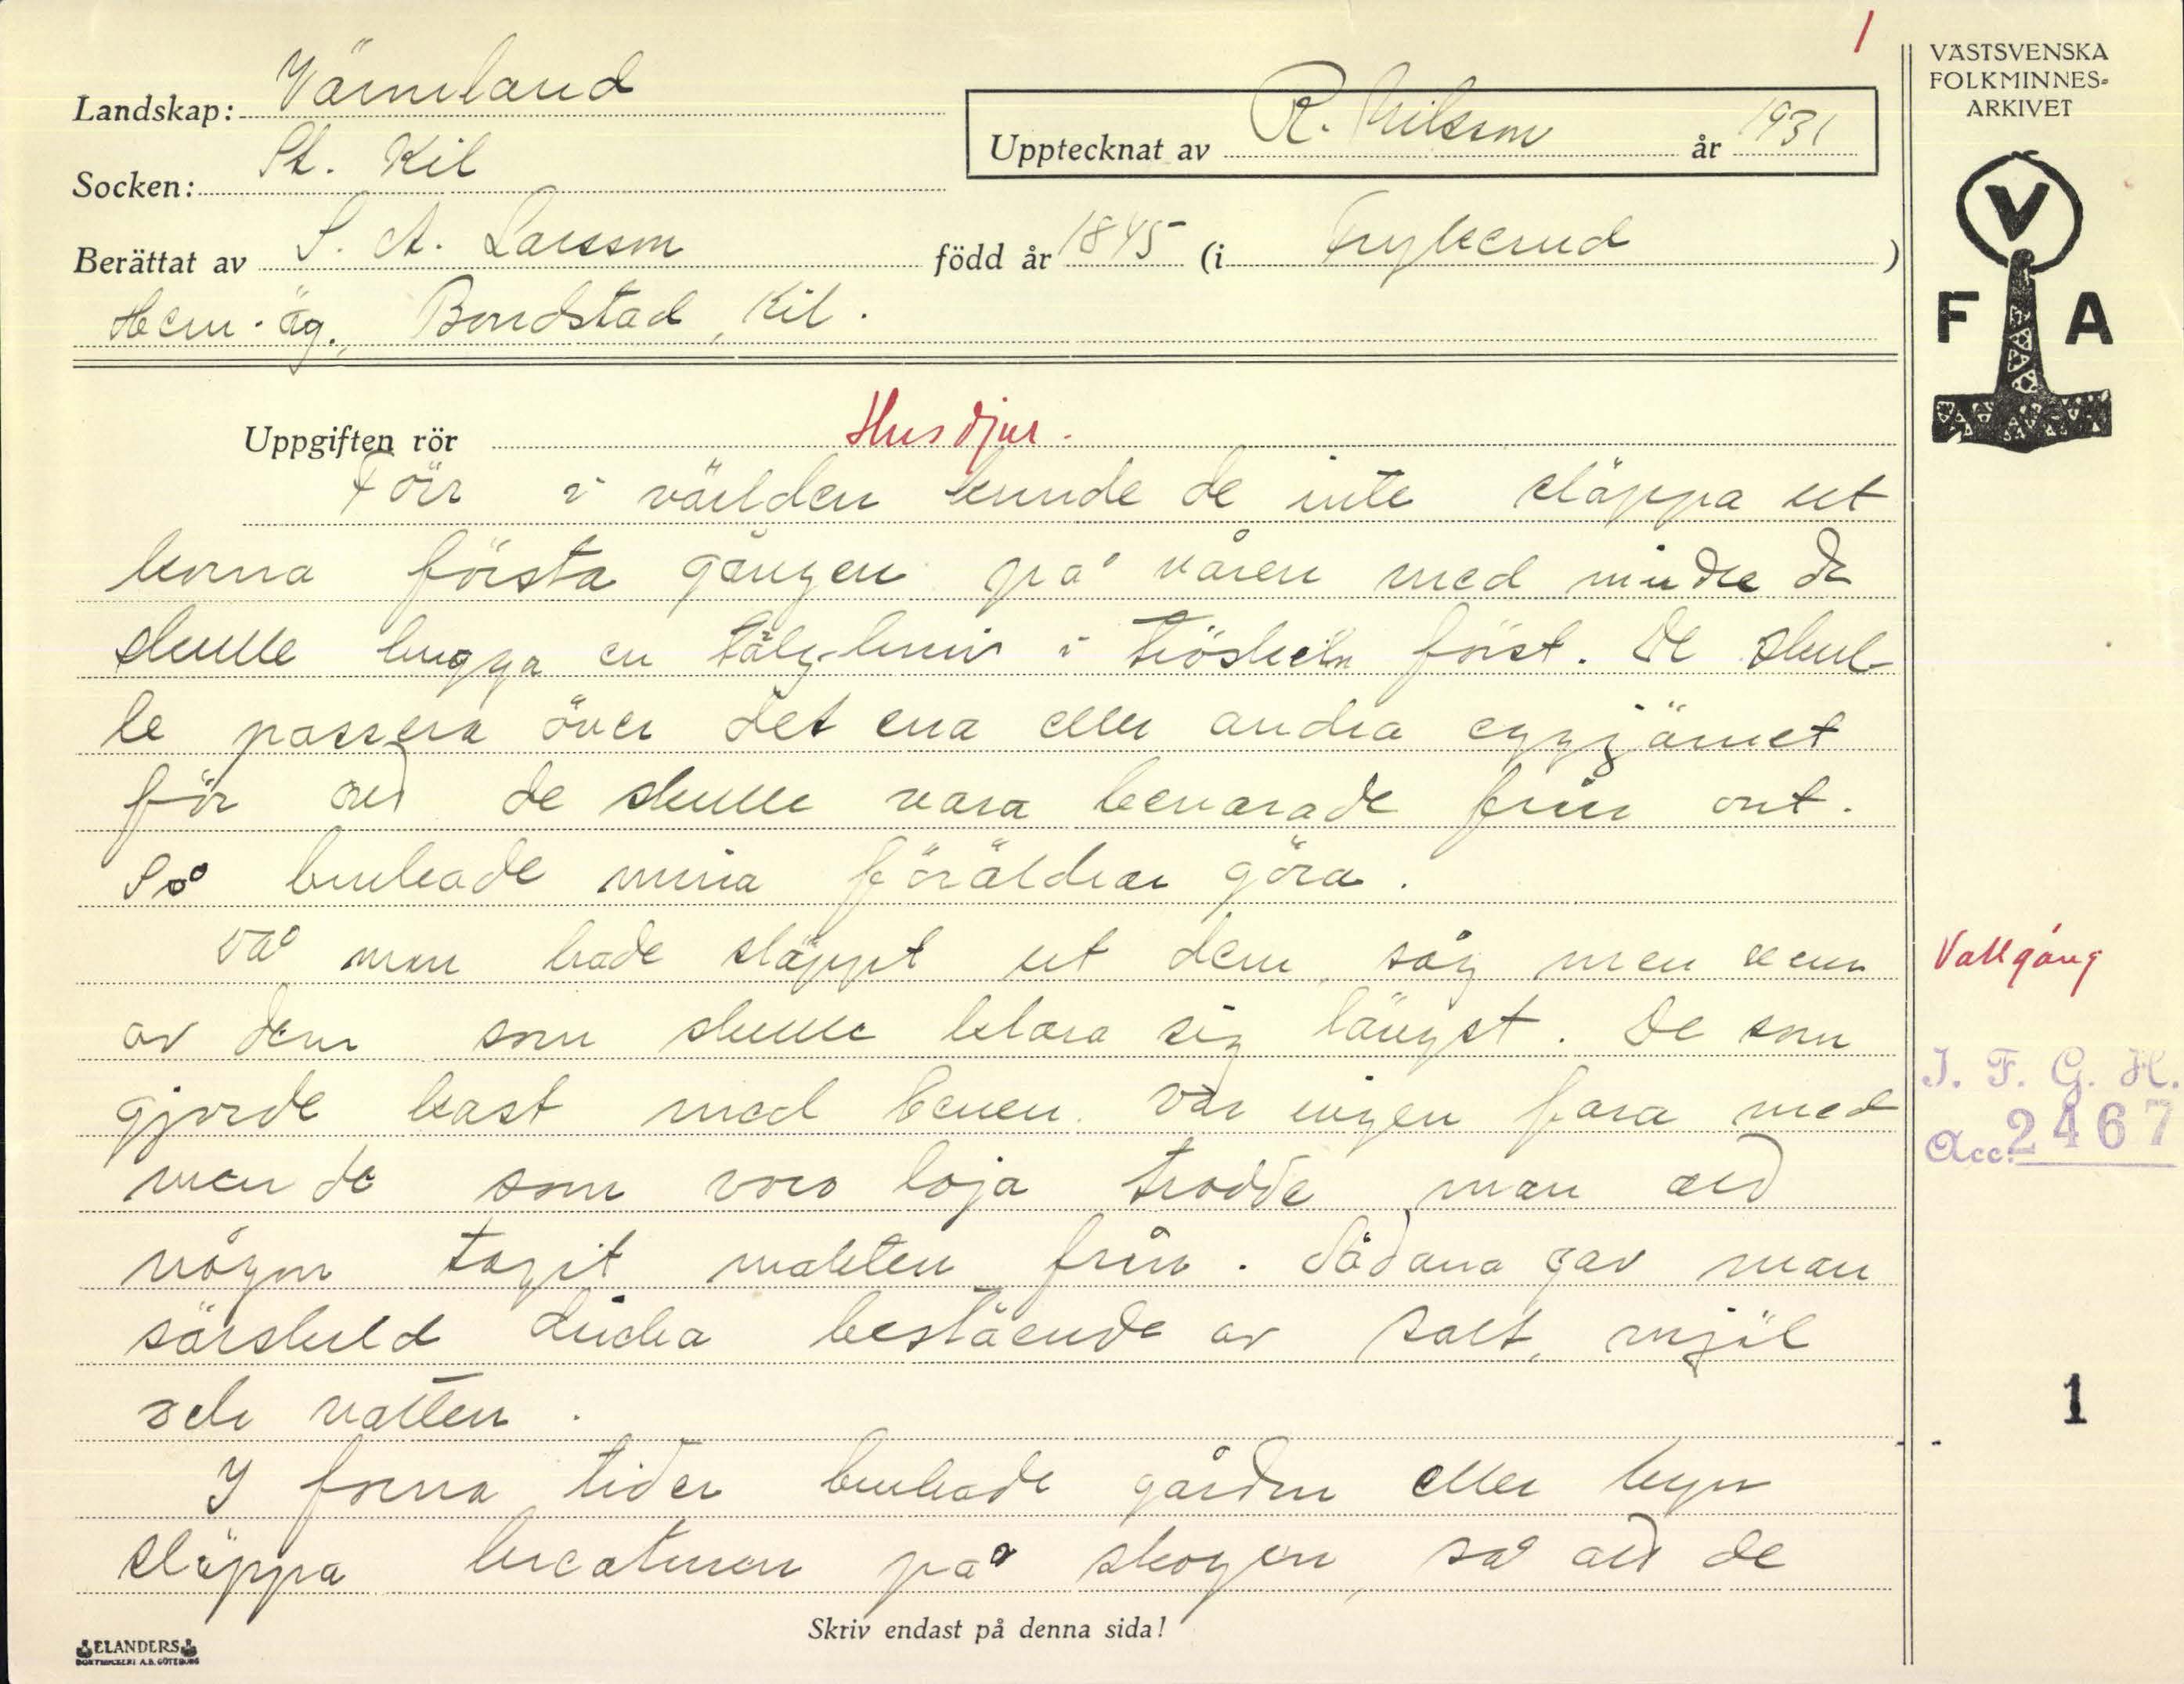 1
VÄSTSVENSKA
FOLKMINNES-
ARKIVET
Landskap: Värmland
Upptecknat av R. Nilsson år 1931
Socken: St. Kil
Berättat av S. A. Larsson född år 1845 (i Frykerud)
Hem.äg., Bondstad, Kil.
V
F A
Uppgiften rör Husdjur.
Förr i världen kunde de inte släppa ut
korna första gången på våren med mindre de
skulle hugga en tälg-kniv i tröskeln först. De skul-
le passera över det ena eller andra eggjärnet
för att de skulle vara bevarade från ont.
Så brukade mina föräldrar göra.
Då man hade släppt ut dem, såg man vem
av dem som skulle klara sig längst. De som
gjorde kast med benen var ingen fara med
men de som voro loja trodde man att
någon tagit makten från. Sådana gav man
särskild dricka bestående av salt, mjöl
och vatten.
I forna tider brukade gården eller byn
släppa kreaturen på skogen, så att de
Vallgång
I. F. G. H.
Acc. 2467
1
Skriv endast på denna sida!
ELANDERS
BOKTRYCKERI A.B. GÖTEBORG